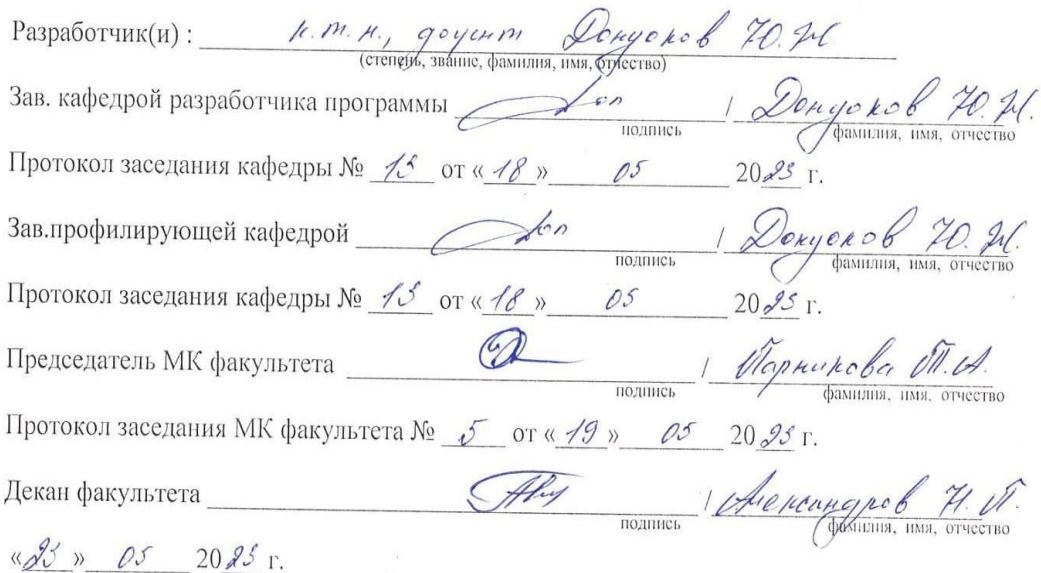 Разработчик(и) : к.т.н., доцент Донуоков Ю.Ж.
(степень, звание, фамилия, имя, отчество)
Зав. кафедрой разработчика программы / Докуоков Ю.Ж.
подпись фамилия, имя, отчество
Протокол заседания кафедры № 13 от « 18 » 05 2023 г.
Зав.профилирующей кафедрой / Докуоков Ю.Ж.
подпись фамилия, имя, отчество
Протокол заседания кафедры № 13 от « 18 » 05 2023 г.
Председатель МК факультета / Парникова Т.А.
подпись фамилия, имя, отчество
Протокол заседания МК факультета № 5 от « 19 » 05 2023 г.
Декан факультета / Александров Н.П.
подпись фамилия, имя, отчество
«23» 05 2023 г.